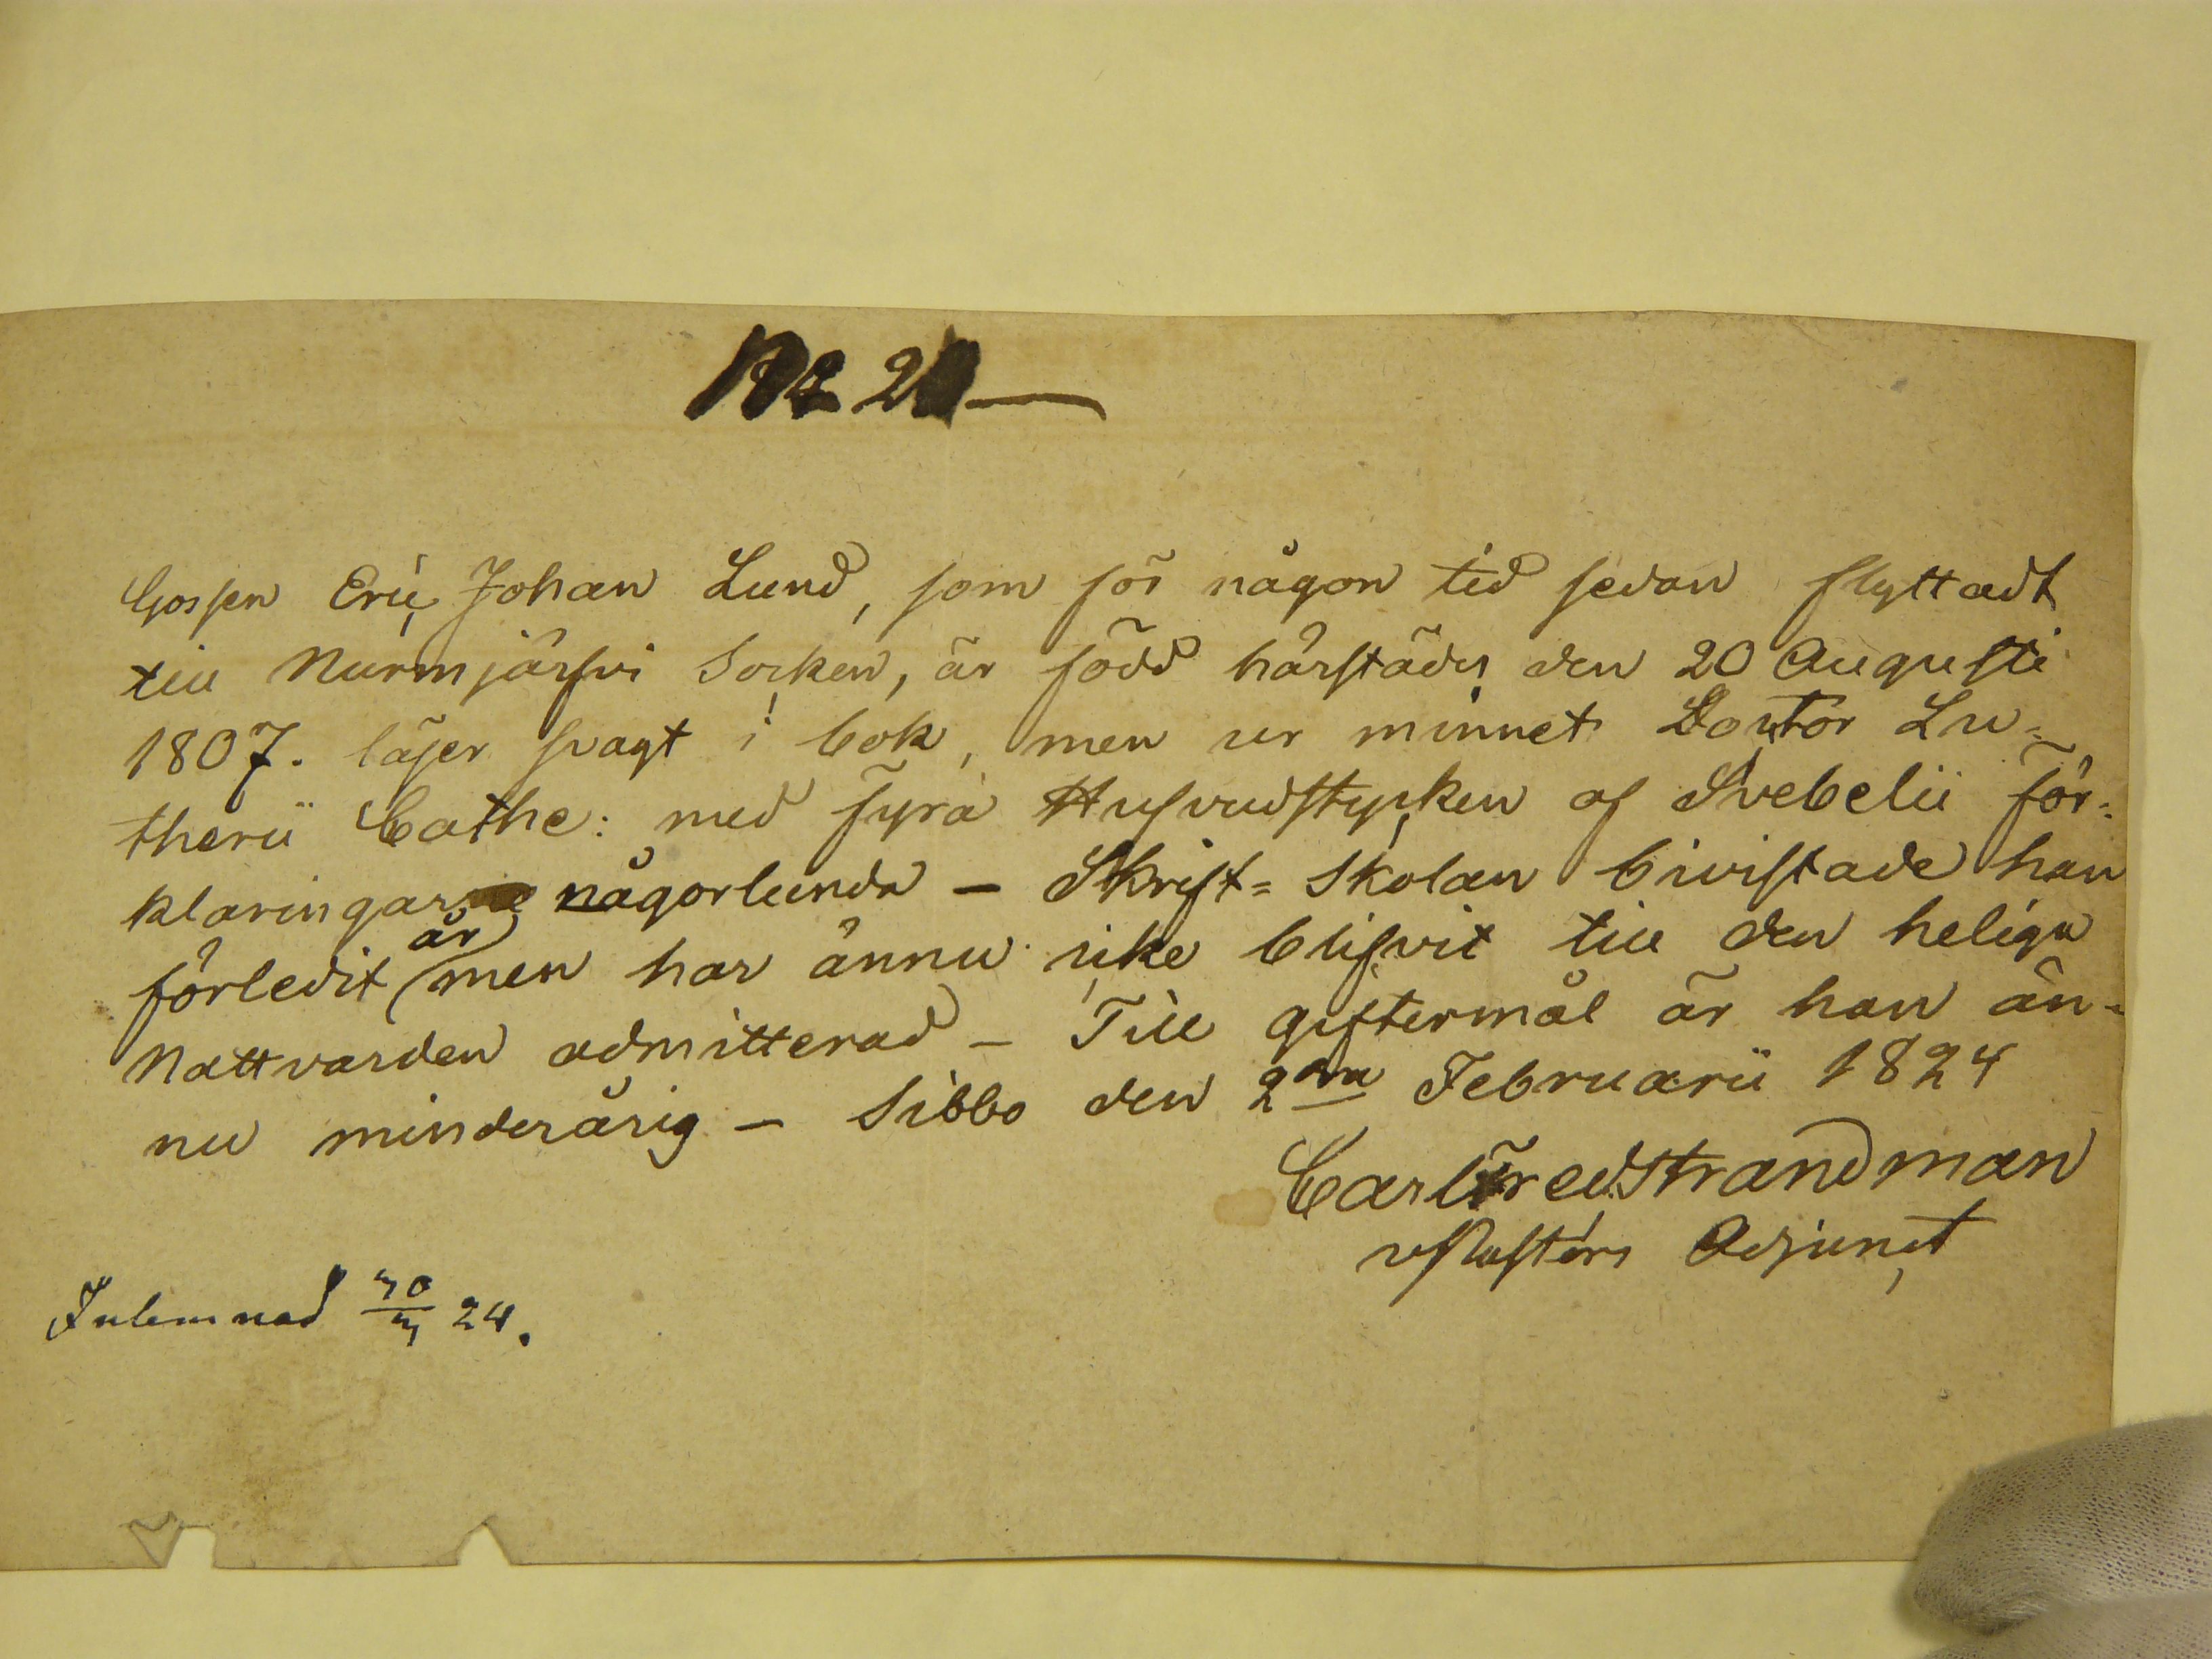 Gossen Eric Johan Lund, som för någon tid sedan flyttadt
till Nurmjärfvi Socken, är född härstädes den 20 Augusti
1807. läser svagt i bok, men ur minnet Doctor Lu=
therii Cathe: med fyra Hufvudstycken af Svebelii för=
klaringar någorlunda – Skrift= Skolan bivistade han
förledit år men har ännu icke blifvit till den heliga
Nattvarden admitterad – Till giftermål är han än=
nu minderårig – Sibbo den 2dra Februarii 1824
Carl Fred Strandman
Pastors Adjunct
Inlemnad 24.